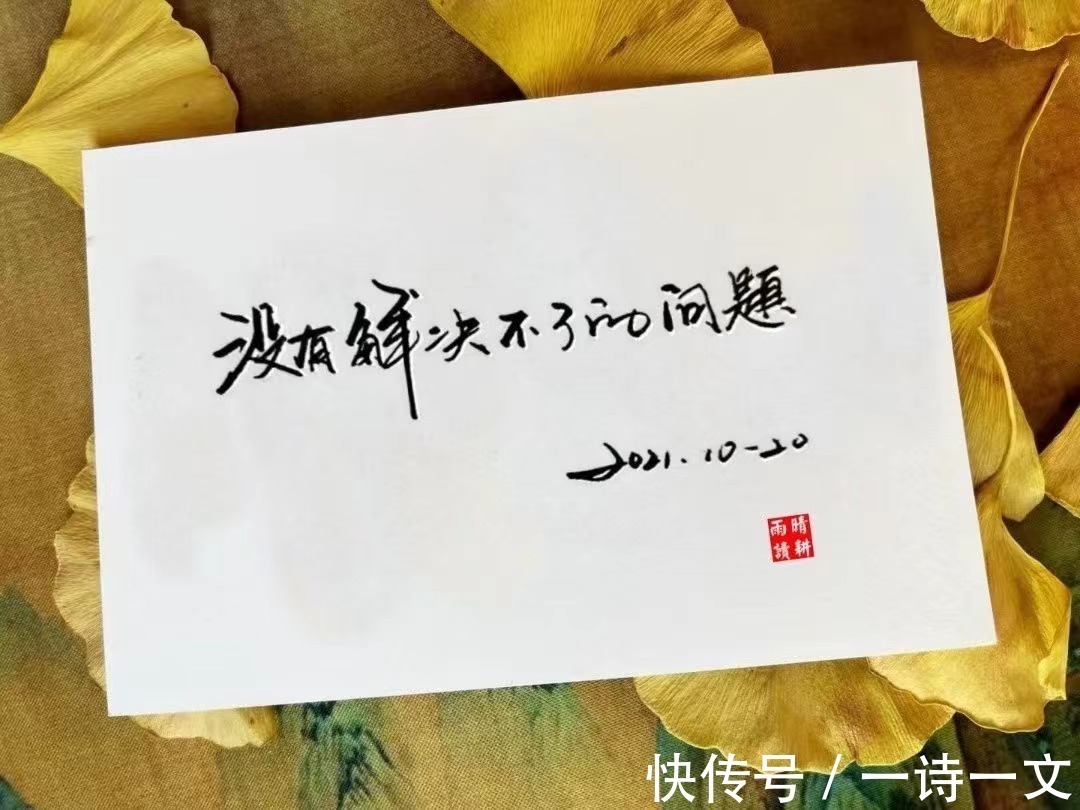 没有解决不了的问题
2021.10-20
晴耕
雨讀
快传号 / 一诗一文